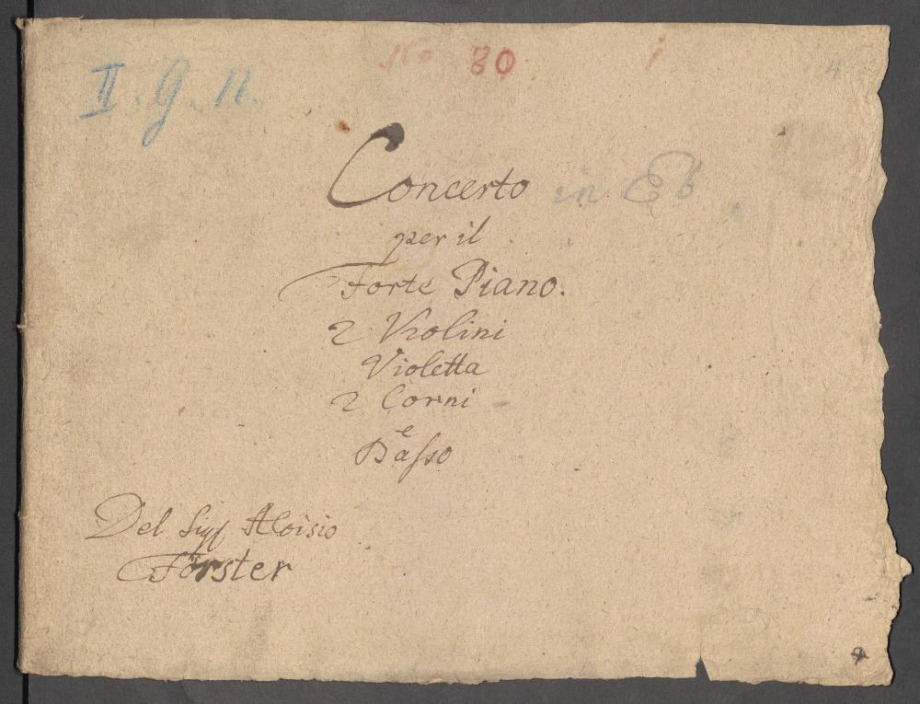 II. G. 11.
No 80
1
4
Concerto in Eb
per il
Forte Piano.
2 Violini
Violetta
2 Corni
e
Baſso
Del Sigr Aloisio
Förster